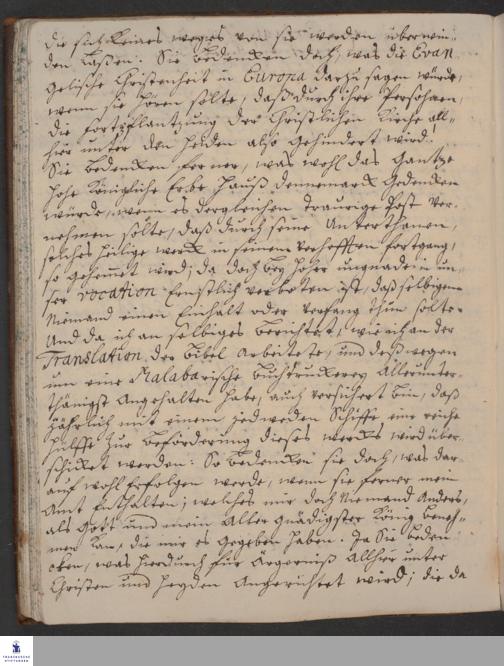 die sich keines weges von sie werden überwin-
den laßen. Sie bedencken doch, was die Evan
gelische Christenheit in Europa darzu sagen würde,
wenn sie hören solte, daß durch ihre Persohnen,
die fortpflantzung der Christlichen Kirche all-
hier unter den Heiden also gehindert wird.
Sie bedencken ferner, was wohl das Gantze
hohe Königliche Erb Hauß Dennemarck gedencken
würde, wenn es dergleichen traurige Post ver-
nehmen solte, daß durch seine Unterthanen,
solches heilige werck in seinem verhofften fortgang,
so gehemmet wird; da doch bey hoher ungnade in un-
ser vocation Ernstlich verboten ist, daß selbigem
Niemand einen Einhalt oder vorfang thun solte.
Und da ich an selbiges berichtet, wie ich an der
Translation der Bibel arbeitete, und deßwegen
um eine Malabarische Buchdruckerey allerunter-
thänigst Angehalten habe, auch versichert bin, daß
jährlich mit einem jedweden Schiffe eine reiche
hülffe zur beförderung dieses wercks wird über-
schicket werden: So bedencken sie doch, was dar-
auf wohl erfolgen werde, wenn sie ferner mein
Amt Enthalten; welches mir doch Niemand anders,
als Gott und mein Aller gnädigster König beneh-
men kan, die mir es gegeben haben. Ja Sie beden
cken, was hierdurch für ärgerniß Allhier unter
Christen und Heyden Angerichtet wird; die da
FRANCKESCHE
STIFTUNGEN